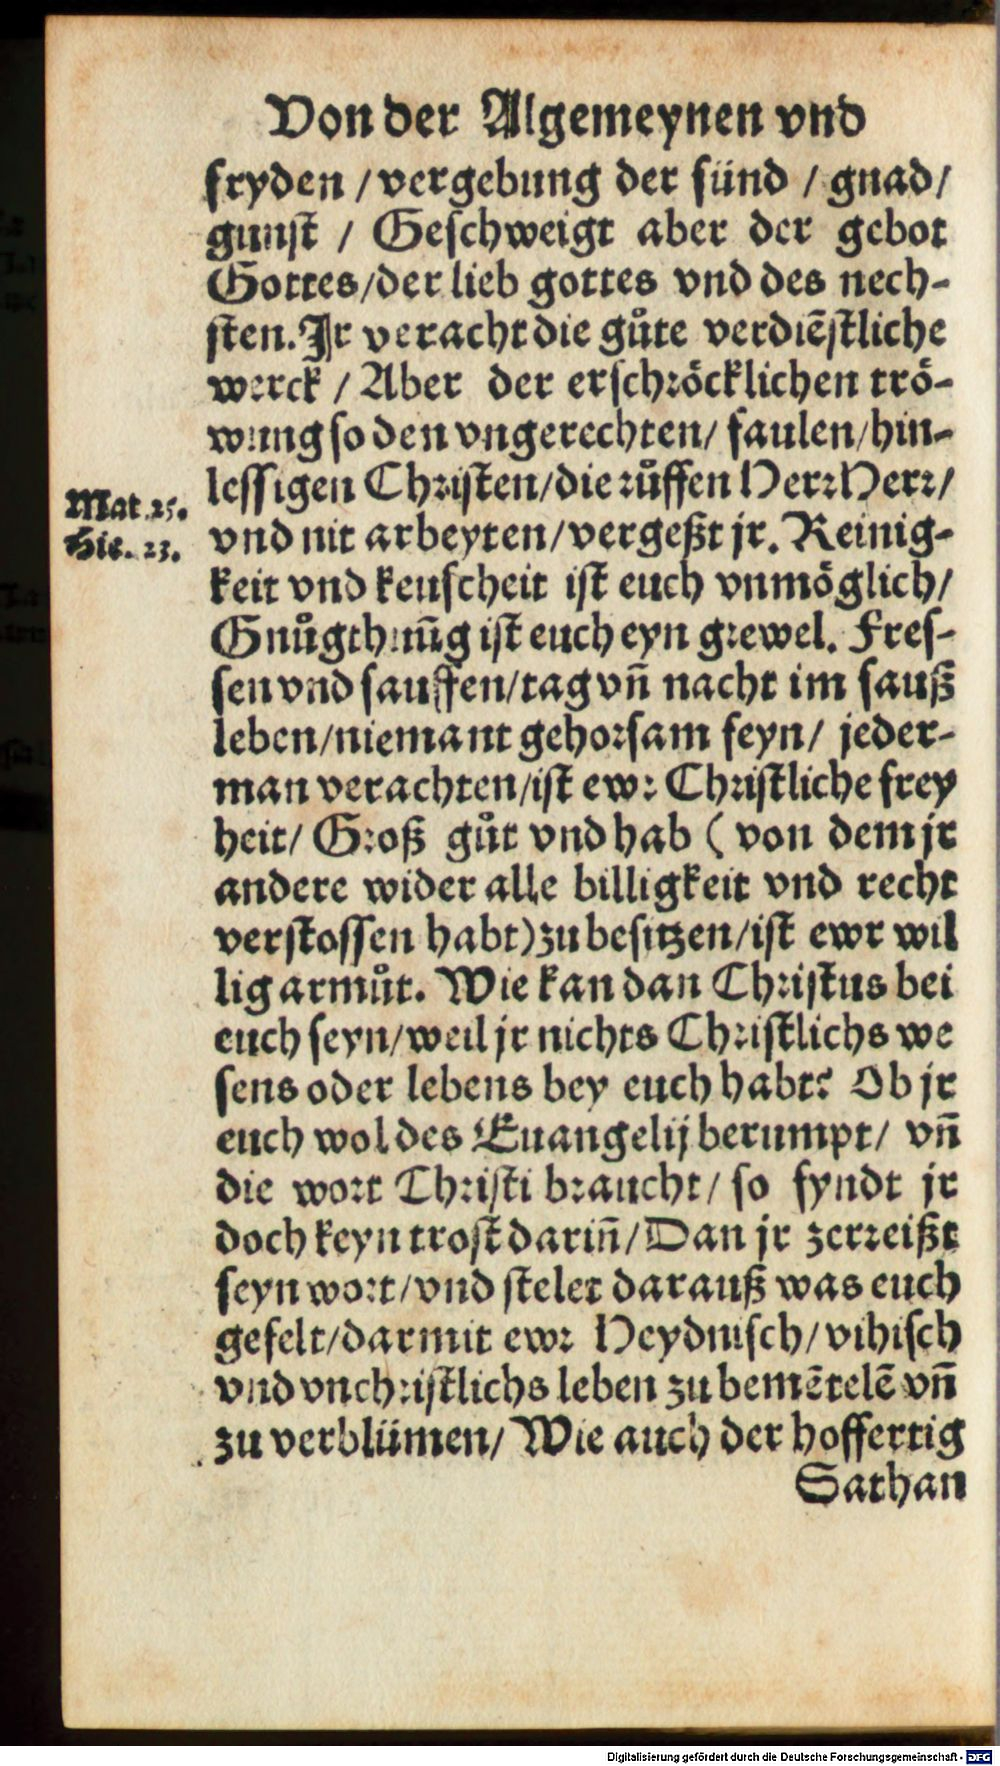 Von der Algemeynen vnd
fryden / vergebung der sünd / gnad/
gunst / Geschweigt aber der gebot
Gottes/der lieb gottes vnd des nech-
sten. Jr veracht die gůte verdiēstliche
werck / Aber der erschröcklichen trö-
wung so den vngerechten/ faulen/hin-
lessigen Christen/die růffen Herr Herr/
Mat. 25.
vnd nit arbeyten/vergeßt jr. Reinig-
Hie. 23.
keit vnd keuscheit ist euch vnmöglich/
Gnůgthuūg ist euch eyn grewel. Fres-
sen vnd sauffen/tag vn̄ nacht im sauß
leben/niemant gehorsam seyn/ jeder-
man verachten/ist ewr Christliche frey
heit/ Groß gůt vnd hab ( von dem jr
andere wider alle billigkeit vnd recht
verstossen habt) zu besitzen/ist ewr wil
lig armůt. Wie kan dan Christus bei
euch seyn/weil jr nichts Christlichs we
sens oder lebens bey euch habt? Ob jr
euch wol des Euangelij berumpt/ vn̄
die wort Christi braucht/ so fyndt jr
doch keyn trost darin̄/Dan jr zerreißt
seyn wort/vnd stelet darauß was euch
gefelt/darmit ewr Heydnisch/vihisch
vnd vnchristlichs leben zu bemētelē vn̄
zu verblümen/ Wie auch der hoffertig
Sathan
Digitalisierung gefördert durch die Deutsche Forschungsgemeinschaft - DFG